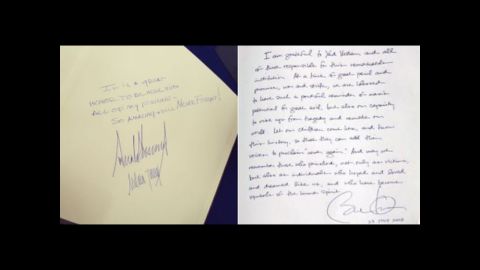 IT IS A GREAT
HONOR TO BE HERE WITH
ALL OF MY FRIENDS -
SO AMAZING & WILL NEVER FORGET!
I am grateful to Yad Vashem and all
of those responsible for this remarkable
institution. At a time of great peril and
promise, war and strife, we are blessed
to have such a powerful reminder of man's
potential for great evil, but also our capacity
to rise up from tragedy and remake our
world. Let our children come here, and know
this history, so that they can add their
voices to proclaim "never again." And may we
remember those who perished, not only as victims,
but also as individuals who hoped and loved
and dreamed like us, and who have become
symbols of the human spirit.
23 JULY 2008